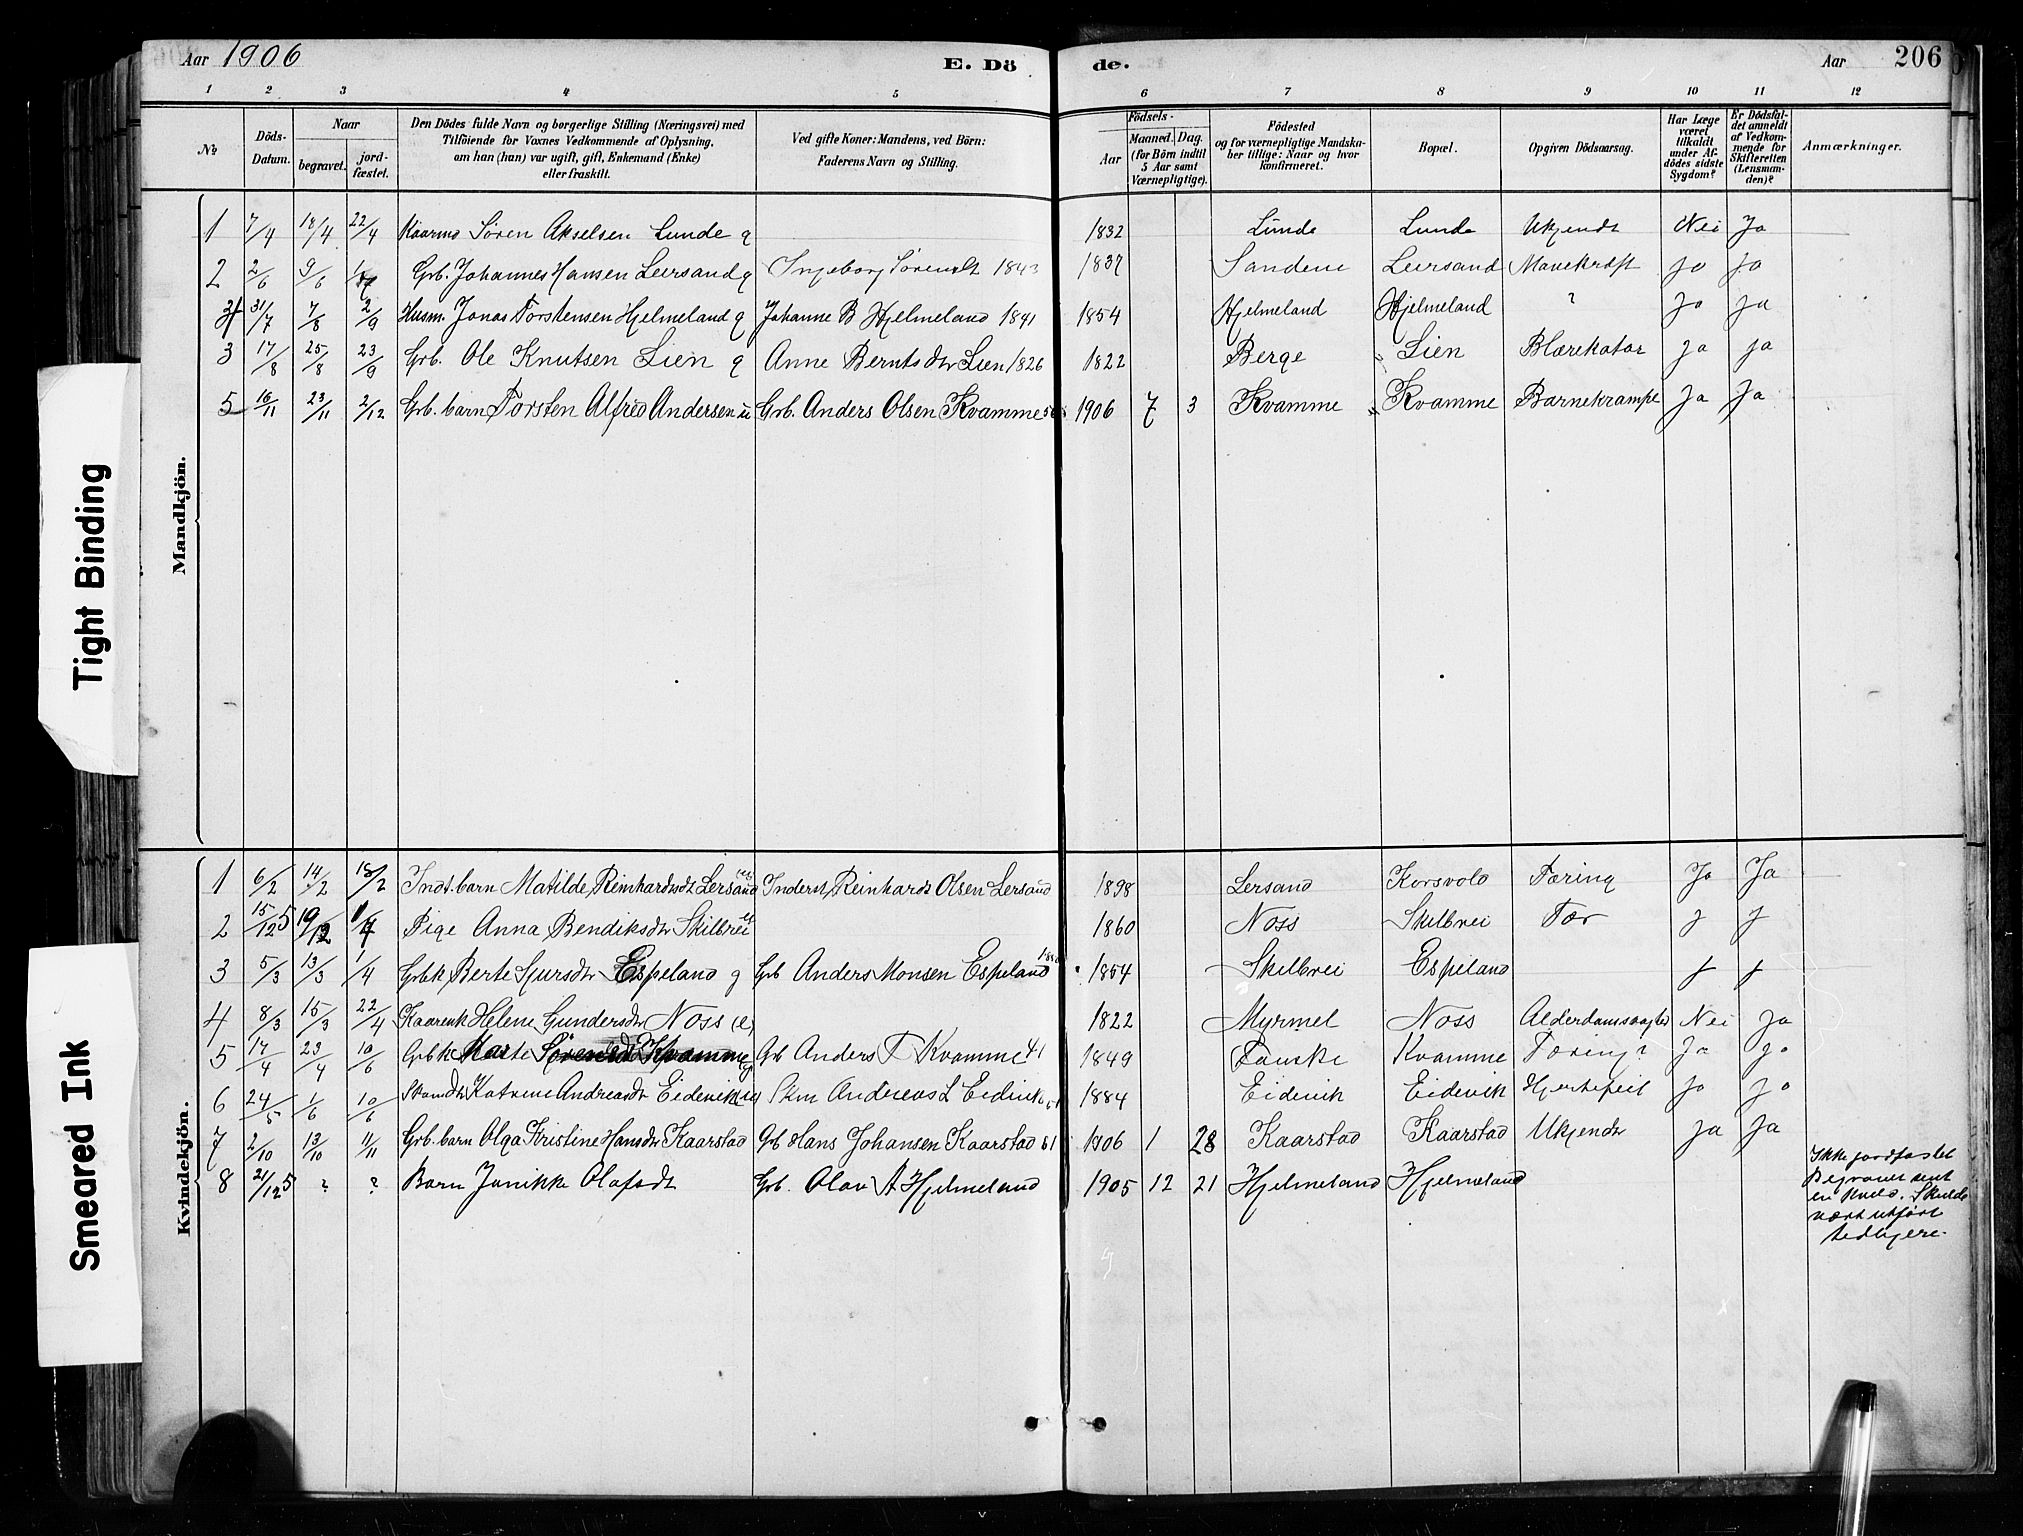 Aar 1906 E. Dö de. Aar 206
1 2 3 4 5 6 7 8 9 10 11 12
№ Döds-Datum. Naar begravet. jordfæstet. Den Dödes fulde Navn og borgerlige Stilling (Næringsvei) med Tilföiende for Voxnes Vedkommende af Oplysning, om han (hun) var ugift, gift, Enkemand (Enke) eller fraskilt. Ved gifte Koner: Mandens, ved Börn: Faderens Navn og Stilling. Födsels- Aar Maaned. Dag. (for Börn indtil 5 Aar samt Værnepligtige). Födested og for værnepligtige Mandskaber tillige: Naar og hvor konfirmeret. Bopæl. Opgiven Dödsaarsag. Har Læge været tilkaldt under Afdödes sidste Sygdom? Er Dödsfaldet anmeldt af Vedkommende for Skifteretten (Lensmanden)? Anmærkninger.
Mandkjön.
1 7/4 18/4 22/4 Kaarmd Sören Akselsen Lunde g 1832 Lunde Lunde Ukjendt Nei Ja
2 2/6 9/6 Grb. Johannes Hansen Leersand g Ingeborg Sörensdt 1843 1837 Sandene Leersand Mavekræft Jo Jo
31/7 7/8 2/9 Husm. Jonas Torstensen Hjelmeland g Johanne B Hjelmeland 1841 1854 Hjelmeland Hjelmeland ? Jo ja
3 17/8 25/8 23/9 Grb. Ole Knutsen Lien g Anne Berntsdtr Lien 1826 1822 Berge Lien Blærekatar ja ja
5 16/11 23/11 2/12 Grb. barn Torsten Alfred Andersen Grb. Anders Olsen Kvamme 1906 7 3 Kvamme Kvamme Barnekrampe Ja Ja
Kvindekjön.
1 6/2 14/2 18/2 Indt. barn Matilde Reinhardtsdt Lersand Inderst Reinhardt Olsen Lersand 1898 Lersand Korsvold Tæring Ja Ja
2 15/12 5 19/12 Pige Anna Bendiksdtr Skilbrei 1860 Noss Skilbrei Tær J J
3 5/3 13/3 1/4 Grbk Berte Sjursdtr Espeland g Grb Anders Monsen Espeland 1854 Skilbrei Espeland J J
4 8/3 15/3 22/4 Kaarenk Helene Gundersdtr Noss (e) 1822 Myrmel Noss Alderdomssvaghed Nei Ja
5 17/4 23/4 10/6 Grbk Marte Sörensdtr Kvamme Grb Anders T Kvamme 41 1849 Kvamme Tæring? Ja Jo
6 24/5 1/6 10/6 Katrine Andreasdt Eidevik Skm Andreas L Eidevik 1884 Eidevik Eidevik Hjertefeil Jo Jo
7 2/10 13/10 11/11 Grb. barn Olga Kristine Hansdtr Kaarstad Grb Hans Johansen Kaarstad 1906 1 28 Kaarstad Kaarstad Ukjendt Ja Ja
8 21/12 5 ? ? Barn Janikke Olafsdt Grb. Olav A Hjelmeland 1905 12 21 Hjelmeland Hjelmeland Ikke jordfæstet
Begravet sent
en kveld. Skulde
vært utfört
tidligere.
Tight Binding
Smeared Ink